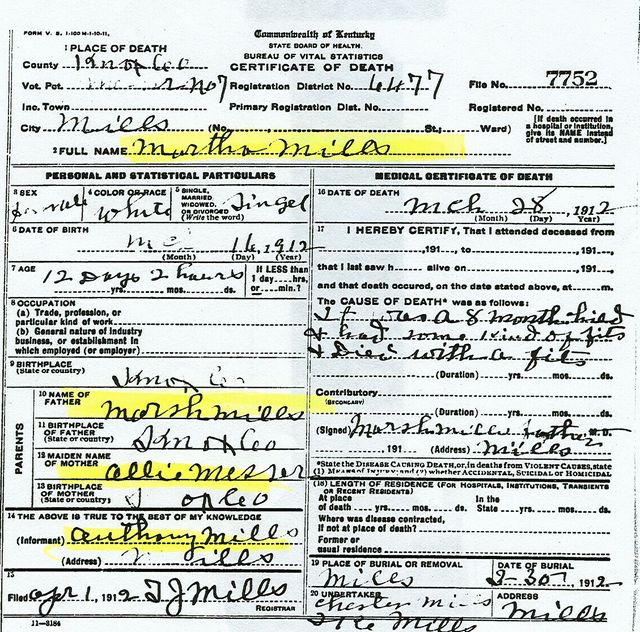 FORM V. S. 1-100 M-1-10-11.
Commonwealth of Kentucky
STATE BOARD OF HEALTH.
BUREAU OF VITAL STATISTICS
CERTIFICATE OF DEATH
1 PLACE OF DEATH
County Knox Co
Vot. Pct. No 7 Registration District No. 6477 File No. 7752
Inc. Town Primary Registration Dist. No. Registered No.
City Mills (No. St.; Ward) [If death occurred in a hospital or institution, give its NAME instead of street and number.]
2 FULL NAME Martha Mills
PERSONAL AND STATISTICAL PARTICULARS
3 SEX Female
4 COLOR OR RACE White
5 SINGLE, MARRIED WIDOWED, OR DIVORCED (Write the word) Singel
6 DATE OF BIRTH 16, 1912
(Month) (Day) (Year)
7 AGE 12 Days 2 hours
yrs. mos. ds.
If LESS than 1 day....hrs. or....min.?
8 OCCUPATION
(a) Trade, profession, or particular kind of work
(b) General nature of Industry business, or establishment in which employed (or employer)
9 BIRTHPLACE (State or country) Knox Co
PARENTS
10 NAME OF FATHER Marsh Mills
11 BIRTHPLACE OF FATHER (State or country) Knox Co
12 MAIDEN NAME OF MOTHER Allie Messer
13 BIRTHPLACE OF MOTHER (State or country) Co
14 THE ABOVE IS TRUE TO THE BEST OF MY KNOWLEDGE
(Informant) Anthony Mills
(Address) Mills
15
Filed Apr 1, 1912 T J Mills
REGISTRAR
11-3184
MEDICAL CERTIFICATE OF DEATH
16 DATE OF DEATH Mch 28, 1912
(Month) (Day) (Year)
17 I HEREBY CERTIFY, That I attended deceased from
, 191 , to , 191 ,
that I last saw h alive on , 191 ,
and that death occured, on the date stated above, at m.
The CAUSE OF DEATH* was as follows:
It was a 8 month
& had some kind of fits
& Died with a fits
(Duration) yrs. mos. ds.
Contributory
(SECONDARY)
(Duration) yrs. mos. ds.
(Signed) Marsh Mills father M.D.
, 191 . (Address) Mills
*State the DISEASE CAUSING DEATH, or, in deaths from VIOLENT CAUSES, state (1) MEANS OF INJURY; and (2) whether ACCIDENTAL, SUICIDAL OR HOMICIDAL.
(18) LENGTH OF RESIDENCE (FOR HOSPITALS, INSTITUTIONS, TRANSIENTS OR RECENT RESIDENTS)
At place of death yrs. mos. ds. In the State yrs. mos. ds.
Where was disease contracted, if not at place of death?
Former or usual residence
19 PLACE OF BURIAL OR REMOVAL Mills
DATE OF BURIAL 1912
20 UNDERTAKER Chester
Mills
ADDRESS Mills